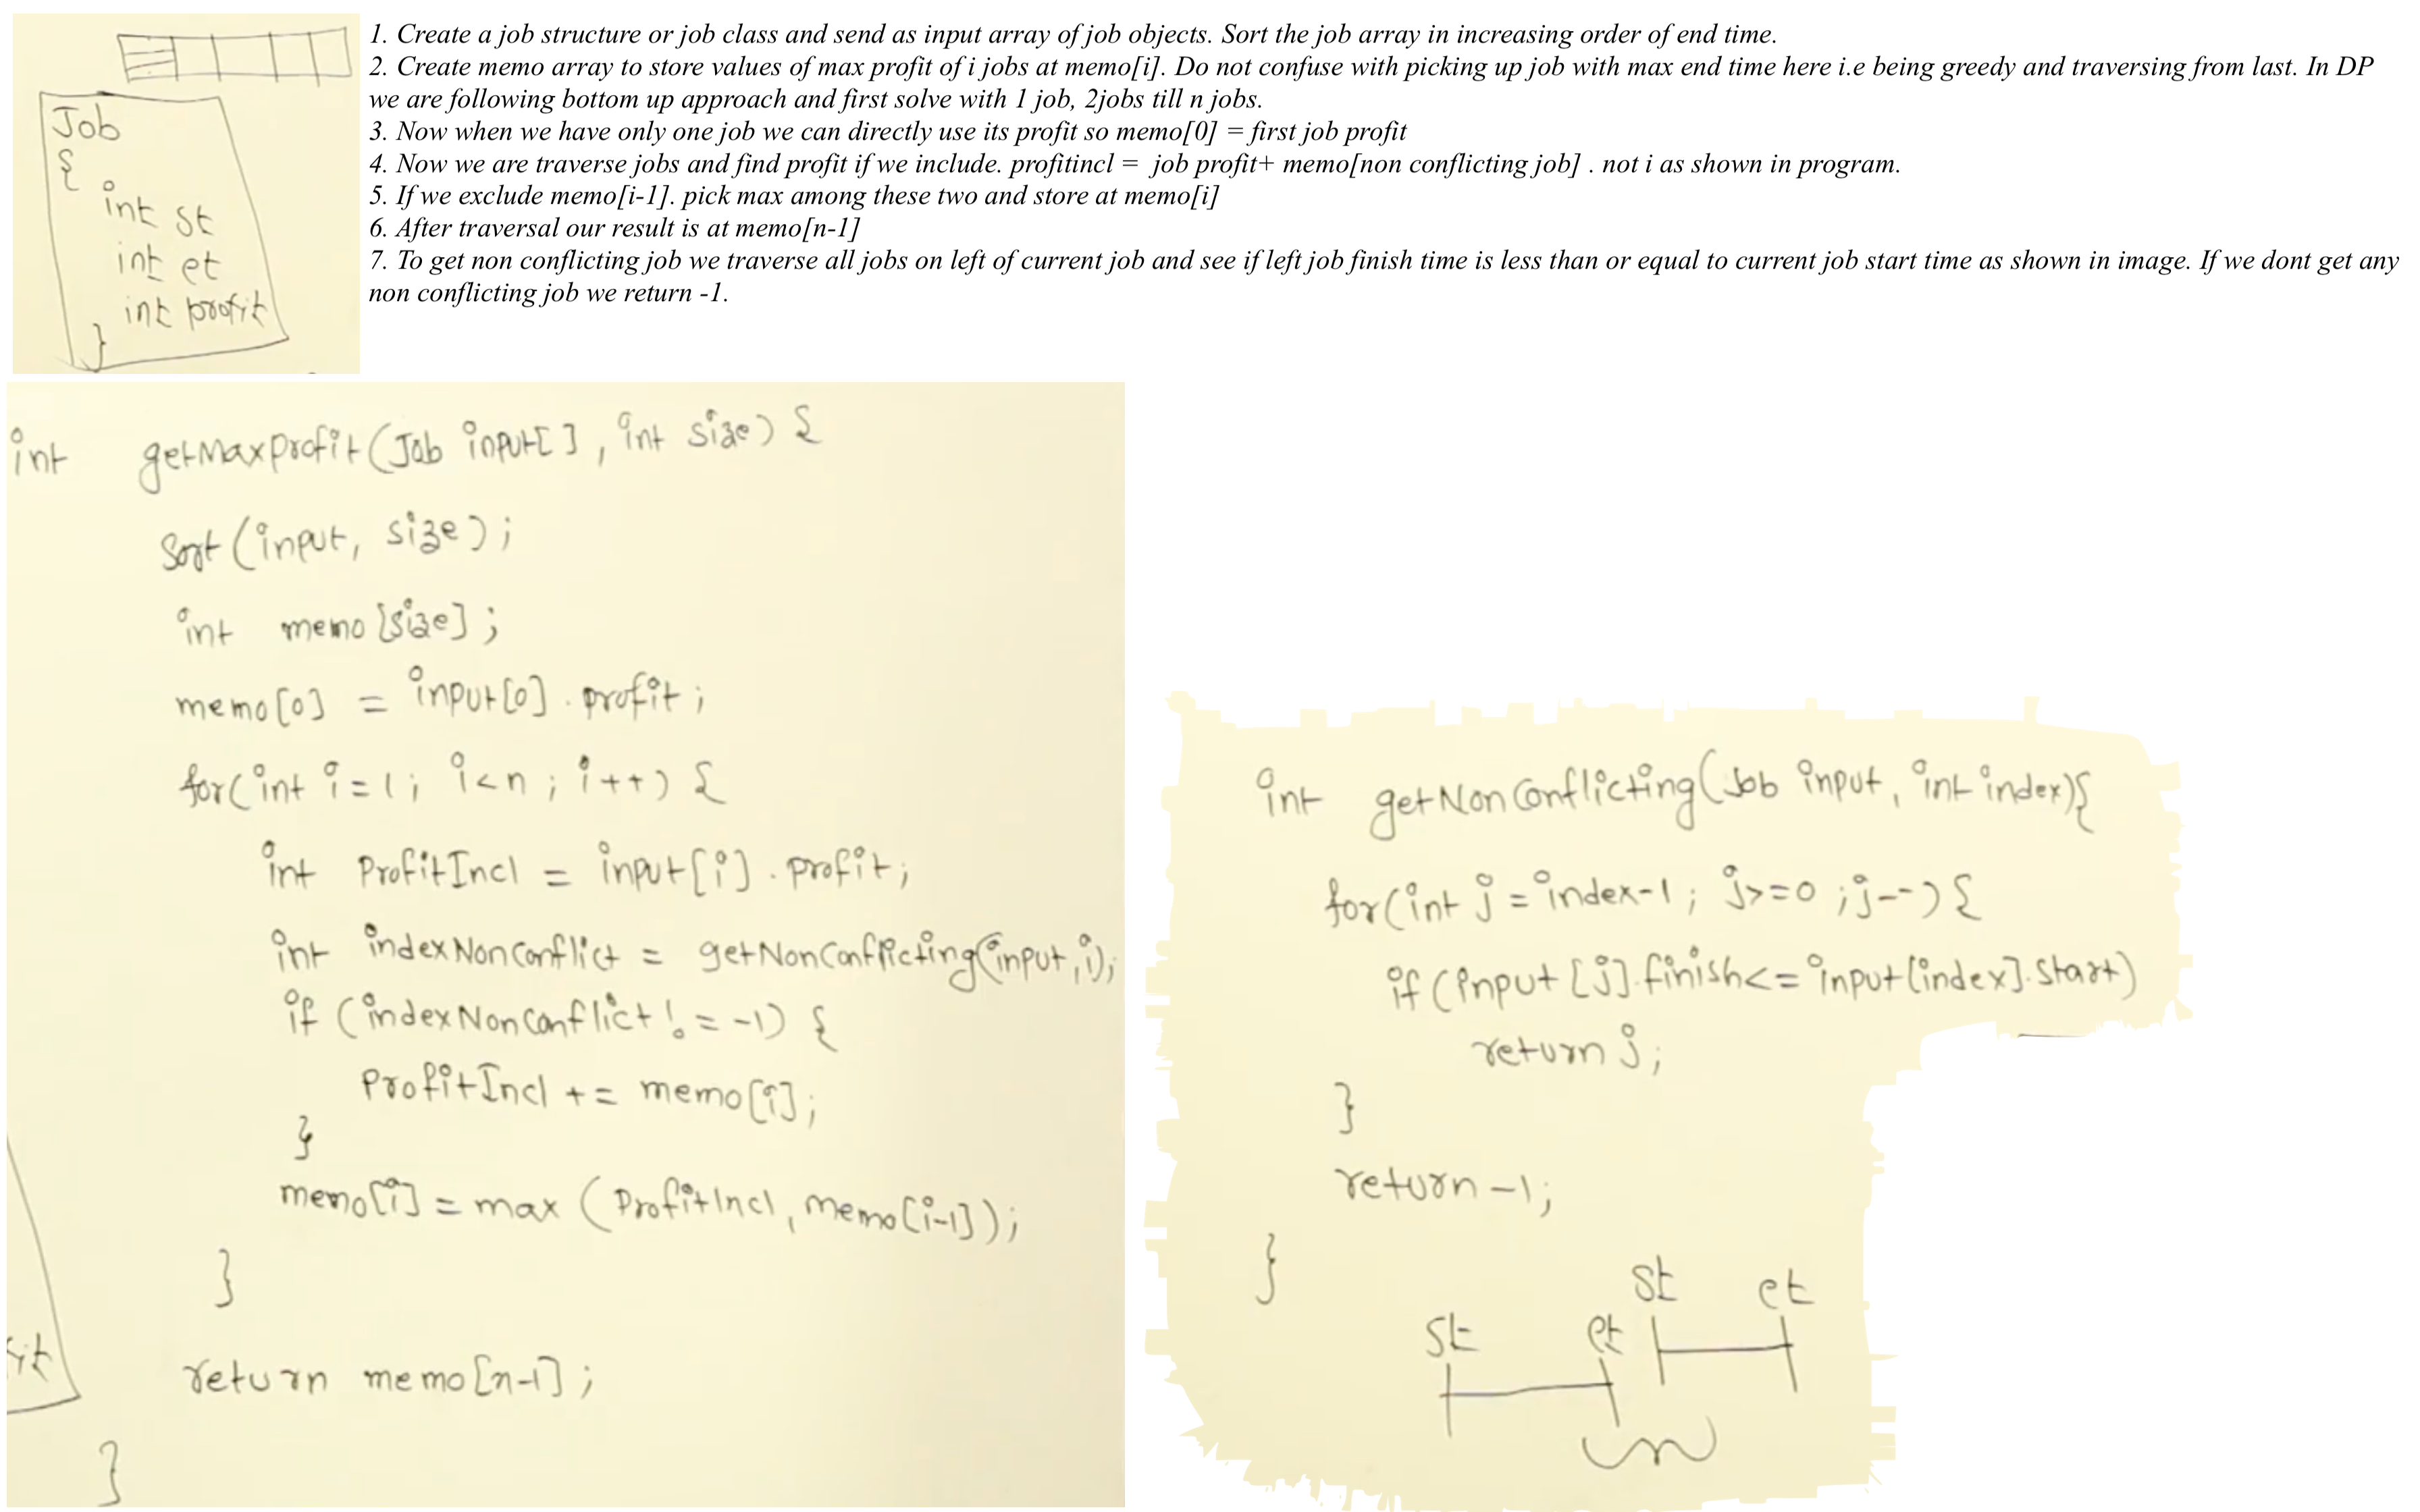 1. Create a job structure or job class and send as input array of job objects. Sort the job array in increasing order of end time.
2. Create memo array to store values of max profit of i jobs at memo[i]. Do not confuse with picking up job with max end time here i.e being greedy and traversing from last. In DP
we are following bottom up approach and first solve with 1 job, 2jobs till n jobs.
3. Now when we have only one job we can directly use its profit so memo[0] = first job profit
4. Now we are traverse jobs and find profit if we include. profitincl =  job profit+ memo[non conflicting job] . not i as shown in program.
5. If we exclude memo[i-1]. pick max among these two and store at memo[i]
6. After traversal our result is at memo[n-1]
7. To get non conflicting job we traverse all jobs on left of current job and see if left job finish time is less than or equal to current job start time as shown in image. If we dont get any
non conflicting job we return -1.
Job
{
int st
int et
int profit
}
int getMaxProfit(Job input[], int size) {
Sort(input, size);
int memo[size];
memo[0] = input[0].profit;
for(int i=1; i<n; i++) {
int ProfitIncl = input[i].profit;
int indexNonConflict = getNonConflicting(input,i);
if (indexNonConflict != -1) {
ProfitIncl += memo[i];
}
memo[i] = max (ProfitIncl, memo[i-1]);
}
return memo[n-1];
}
int getNonConflicting(Job input, int index){
for(int j = index-1; j>=0; j--) {
if (input[j].finish<= input[index].start)
return j;
}
return -1;
}
st et
st et